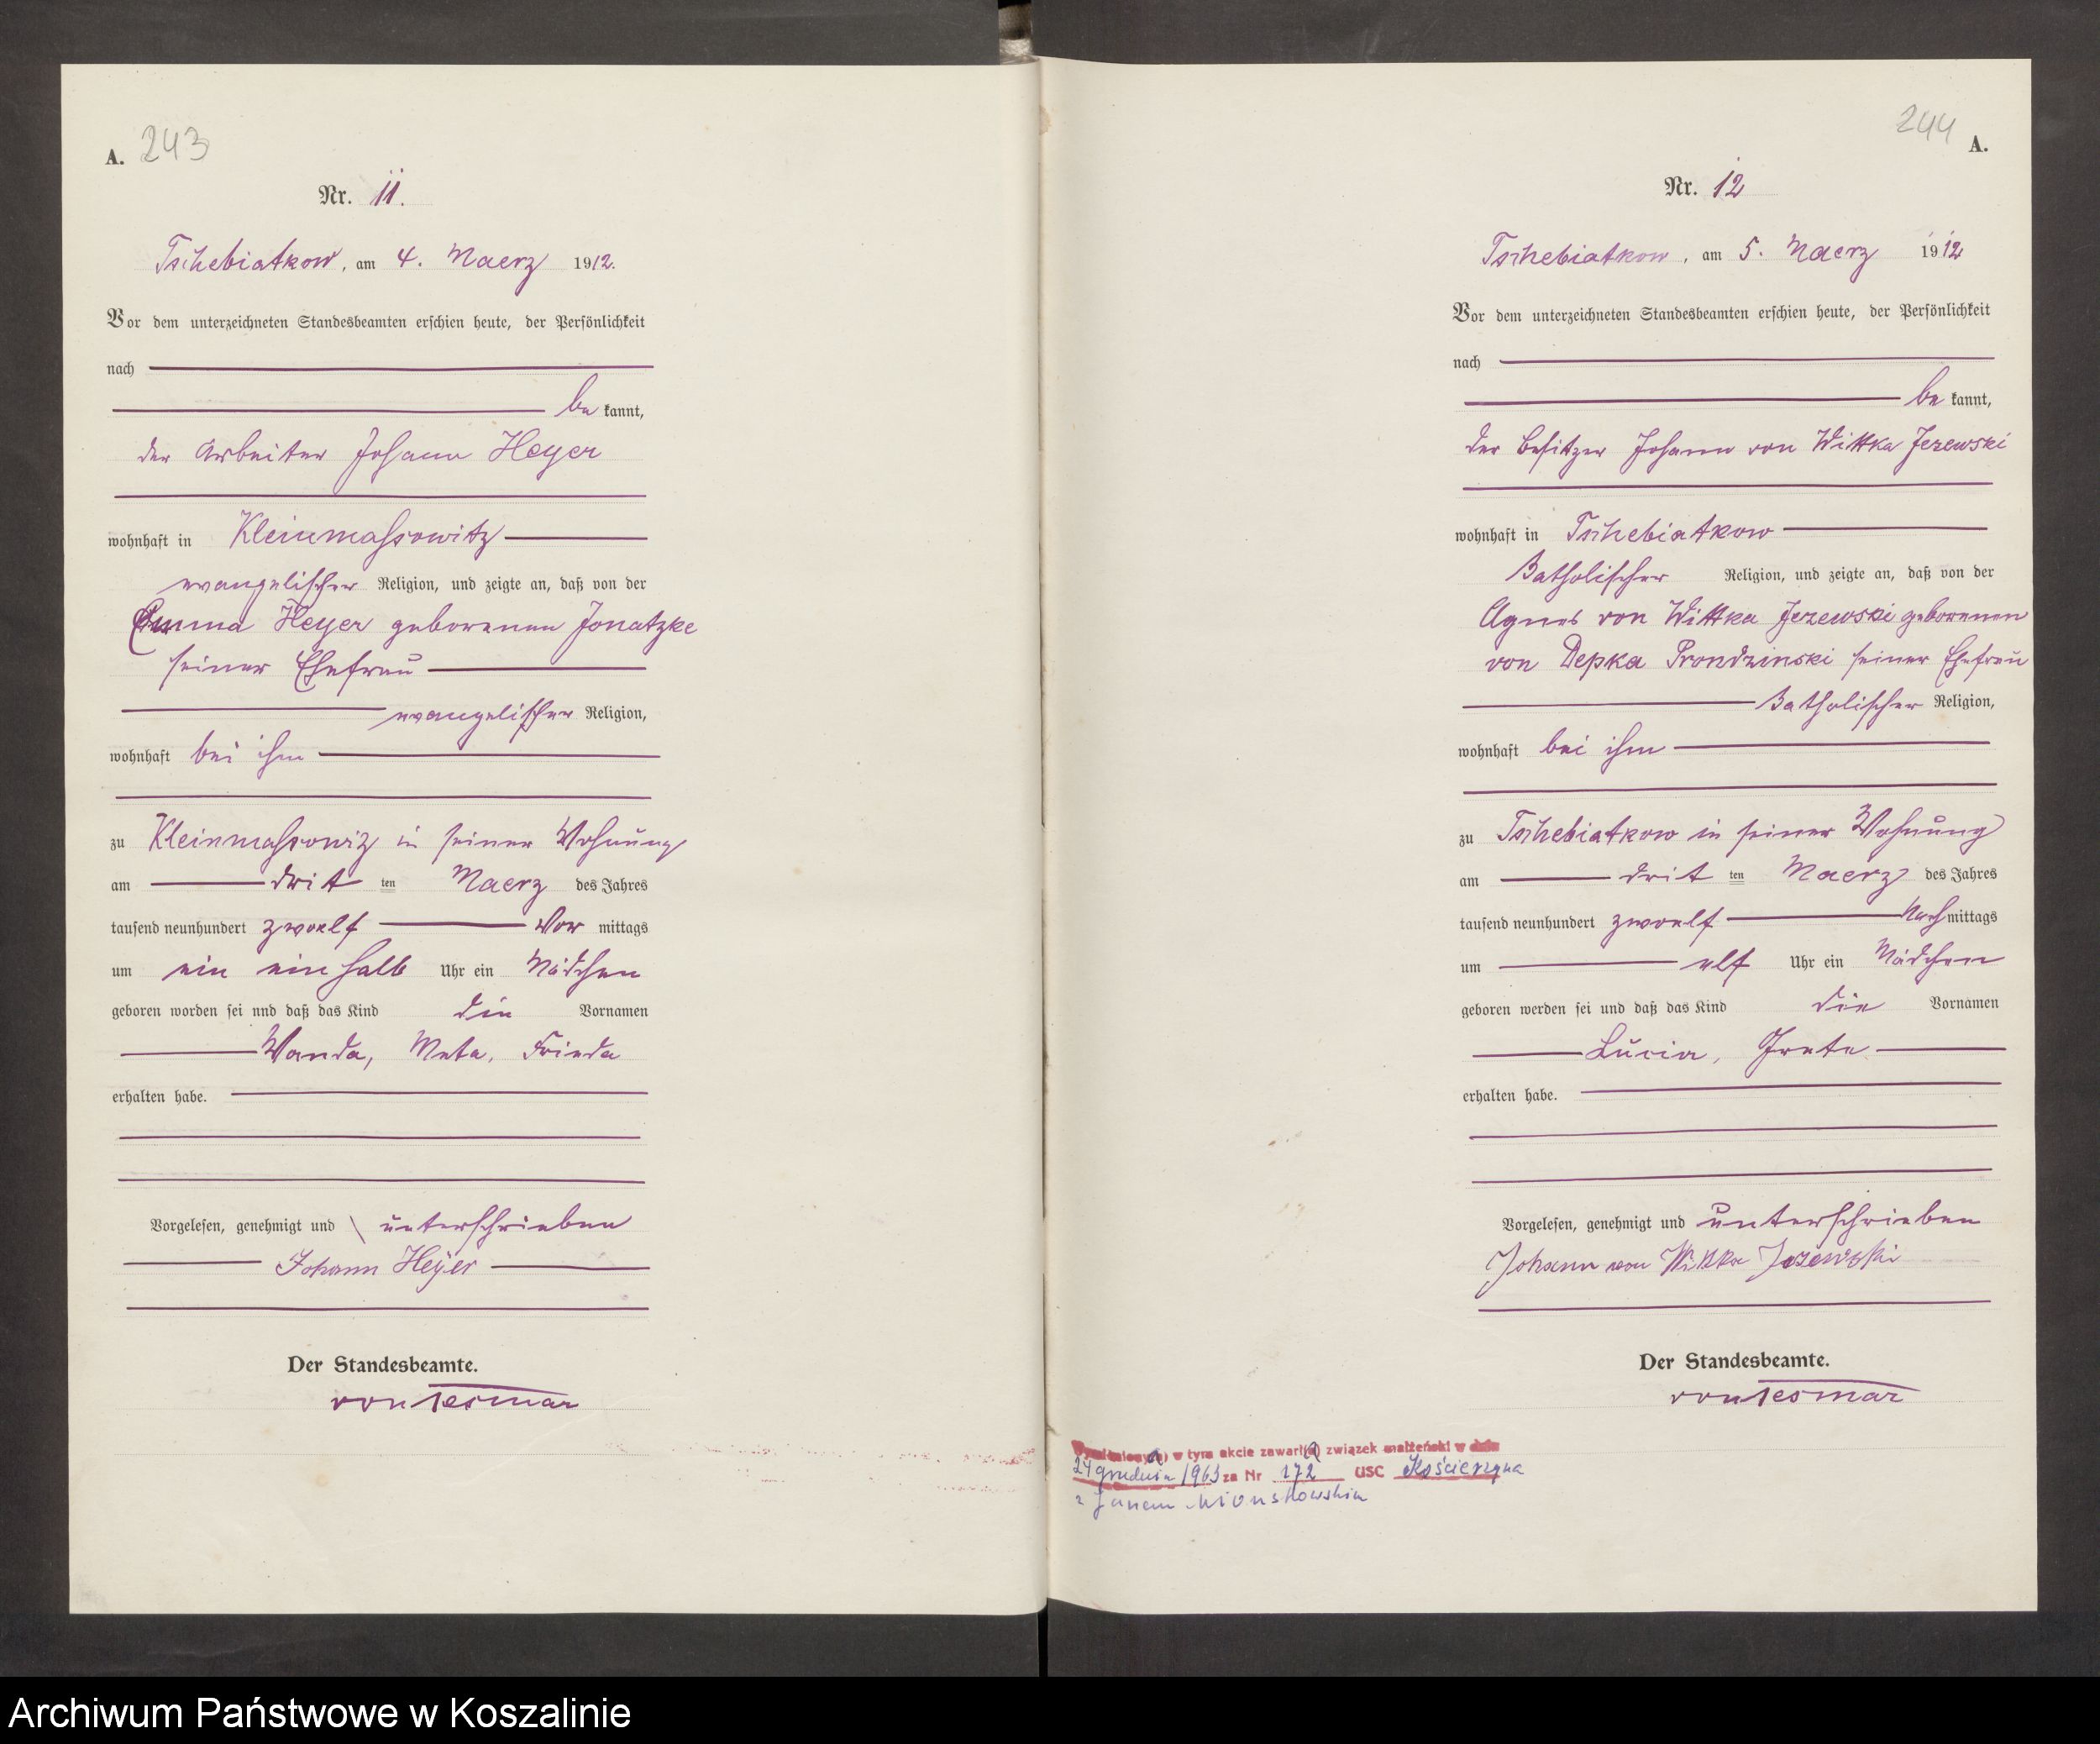 A. 243
Nr. 11.
Tschebiatkow, am 4. Maerz 1912.
Vor dem unterzeichneten Standesbeamten erschien heute, der Persönlichkeit
nach
be kannt,
der Arbeiter Johann Heyer
wohnhaft in Kleinmassowitz
evangelischer Religion, und zeigte an, daß von der
Emma Heyer geborenen Jonatzke
seiner Ehefrau
evangelischer Religion,
wohnhaft bei ihm
zu Kleinmassowiz in seiner Wohnung
am drit ten Maerz des Jahres
tausend neunhundert zwoelf Vor mittags
um ein einhalb Uhr ein Mädchen
geboren worden sei nnd daß das Kind die Vornamen
Wanda, Meta, Frieda
erhalten habe.
Vorgelesen, genehmigt und unterschrieben
Johann Heyer
Der Standesbeamte.
von Tesmar
244 A.
Nr. 12
Tschebiatkow, am 5. Maerz 1912
Vor dem unterzeichneten Standesbeamten erschien heute, der Persönlichkeit
nach
be kannt,
der Besitzer Johann von Wittka Jezewski
wohnhaft in Tschebiatkow
Katholischer Religion, und zeigte an, daß von der
Agnes von Wittka Jezewski geborenen
von Depka Prondzinski seiner Ehefrau
Katholischer Religion,
wohnhaft bei ihm
zu Tschebiatkow in seiner Wohnung
am drit ten Maerz des Jahres
tausend neunhundert zwoelf Nach mittags
um elf Uhr ein Mädchen
geboren werden sei und daß das Kind die Vornamen
Lucia, Grete
erhalten habe.
Vorgelesen, genehmigt und unterschrieben
Johann von Wittka Jezewski
Der Standesbeamte.
von Tesmar
w tym akcie zawarł(a) związek małżeński w dniu
24 grudnia 1963 za Nr 172 USC Kościerzyna
z Janem
Archiwum Państwowe w Koszalinie